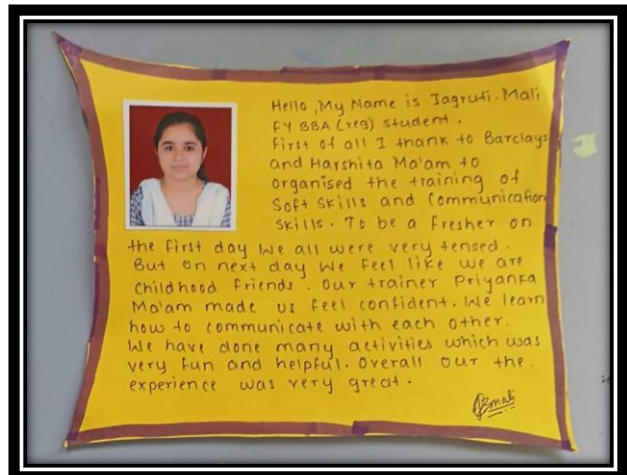 Hello, My Name is Jagruti. Mali
FY BBA (reg) student.
First of all I thank to Barclays
and Harshita Ma'am to
organised the training of
Soft Skills and Communication
Skills. To be a fresher on
the first day we all were very tensed.
But on next day we feel like we are
childhood friends. Our trainer Priyanka
Ma'am made us feel confident. We learn
how to communicate with each other.
We have done many activities which was
very fun and helpful. Overall our the
experience was very great.